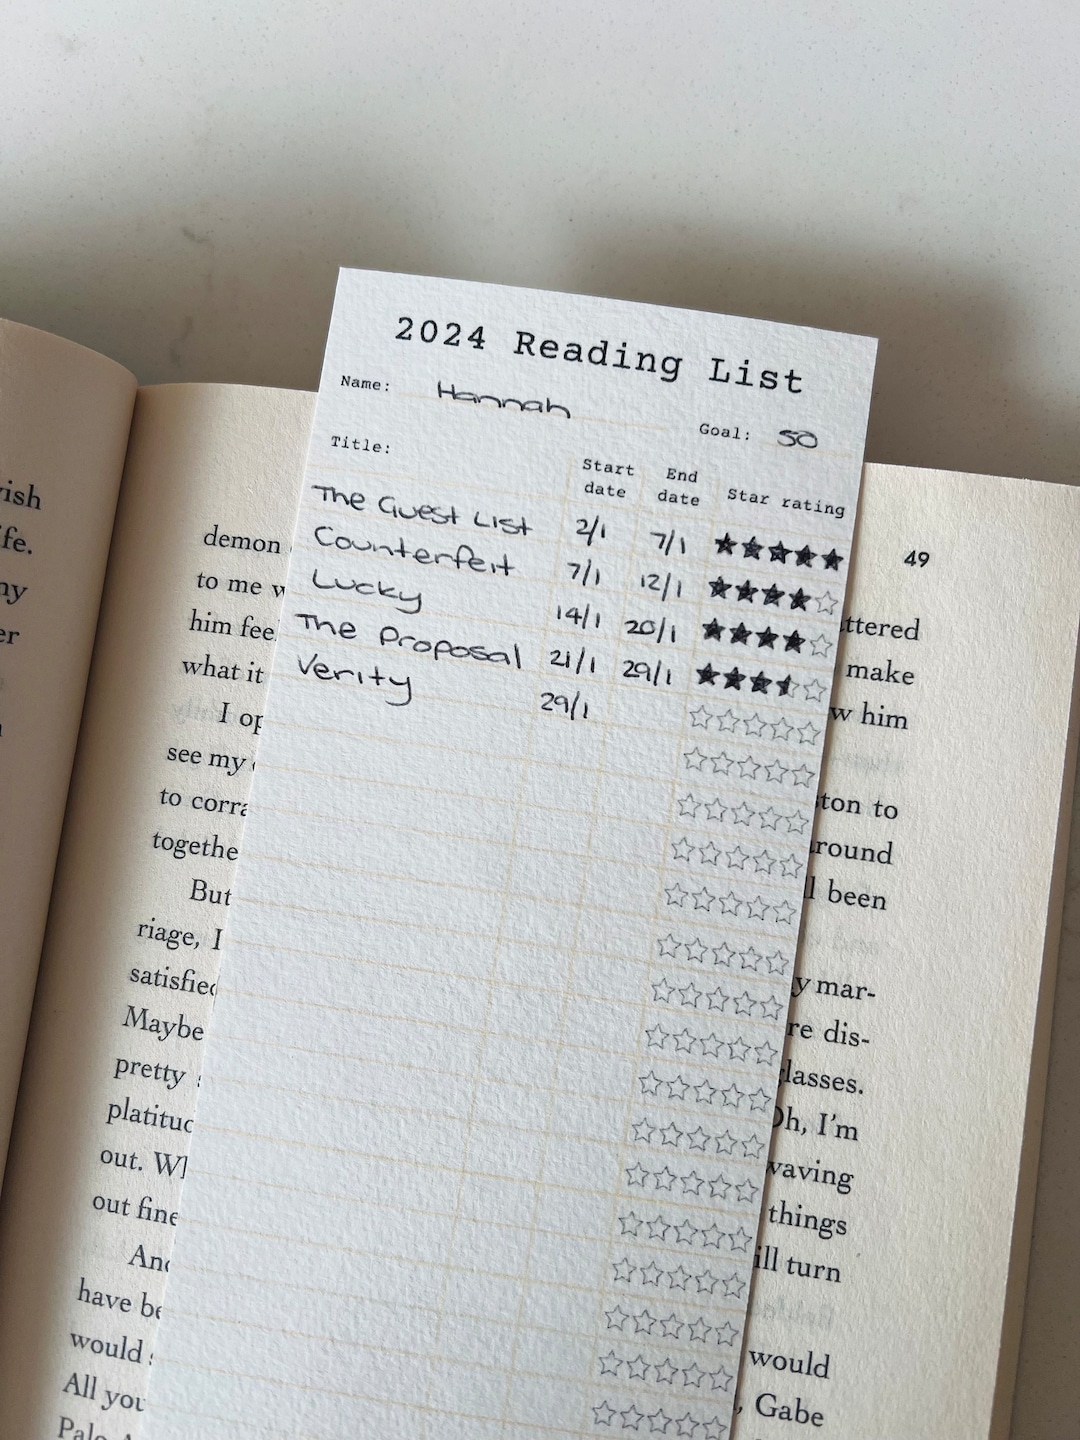 2024 Reading List
Name: Hannah
Goal: 50
Title: Start date End date Star rating
The Guest List 2/1 7/1 ★★★★★
Counterfeit 7/1 12/1 ★★★★☆
Lucky 14/1 20/1 ★★★★☆
The Proposal 21/1 29/1
Verity 29/1 ☆☆☆☆☆
49
fe.
er
demon
to me
him fee
what it
I op
see my
to corra
togethe
But
riage, I
satisfied
Maybe
pretty
platitud
out. Wh
out fine
And
have be
would
All you
Palo A
ttered
make
w him
ton to
round
been
y mar-
re dis-
glasses.
Oh, I'm
waving
things
ill turn
would
, Gabe